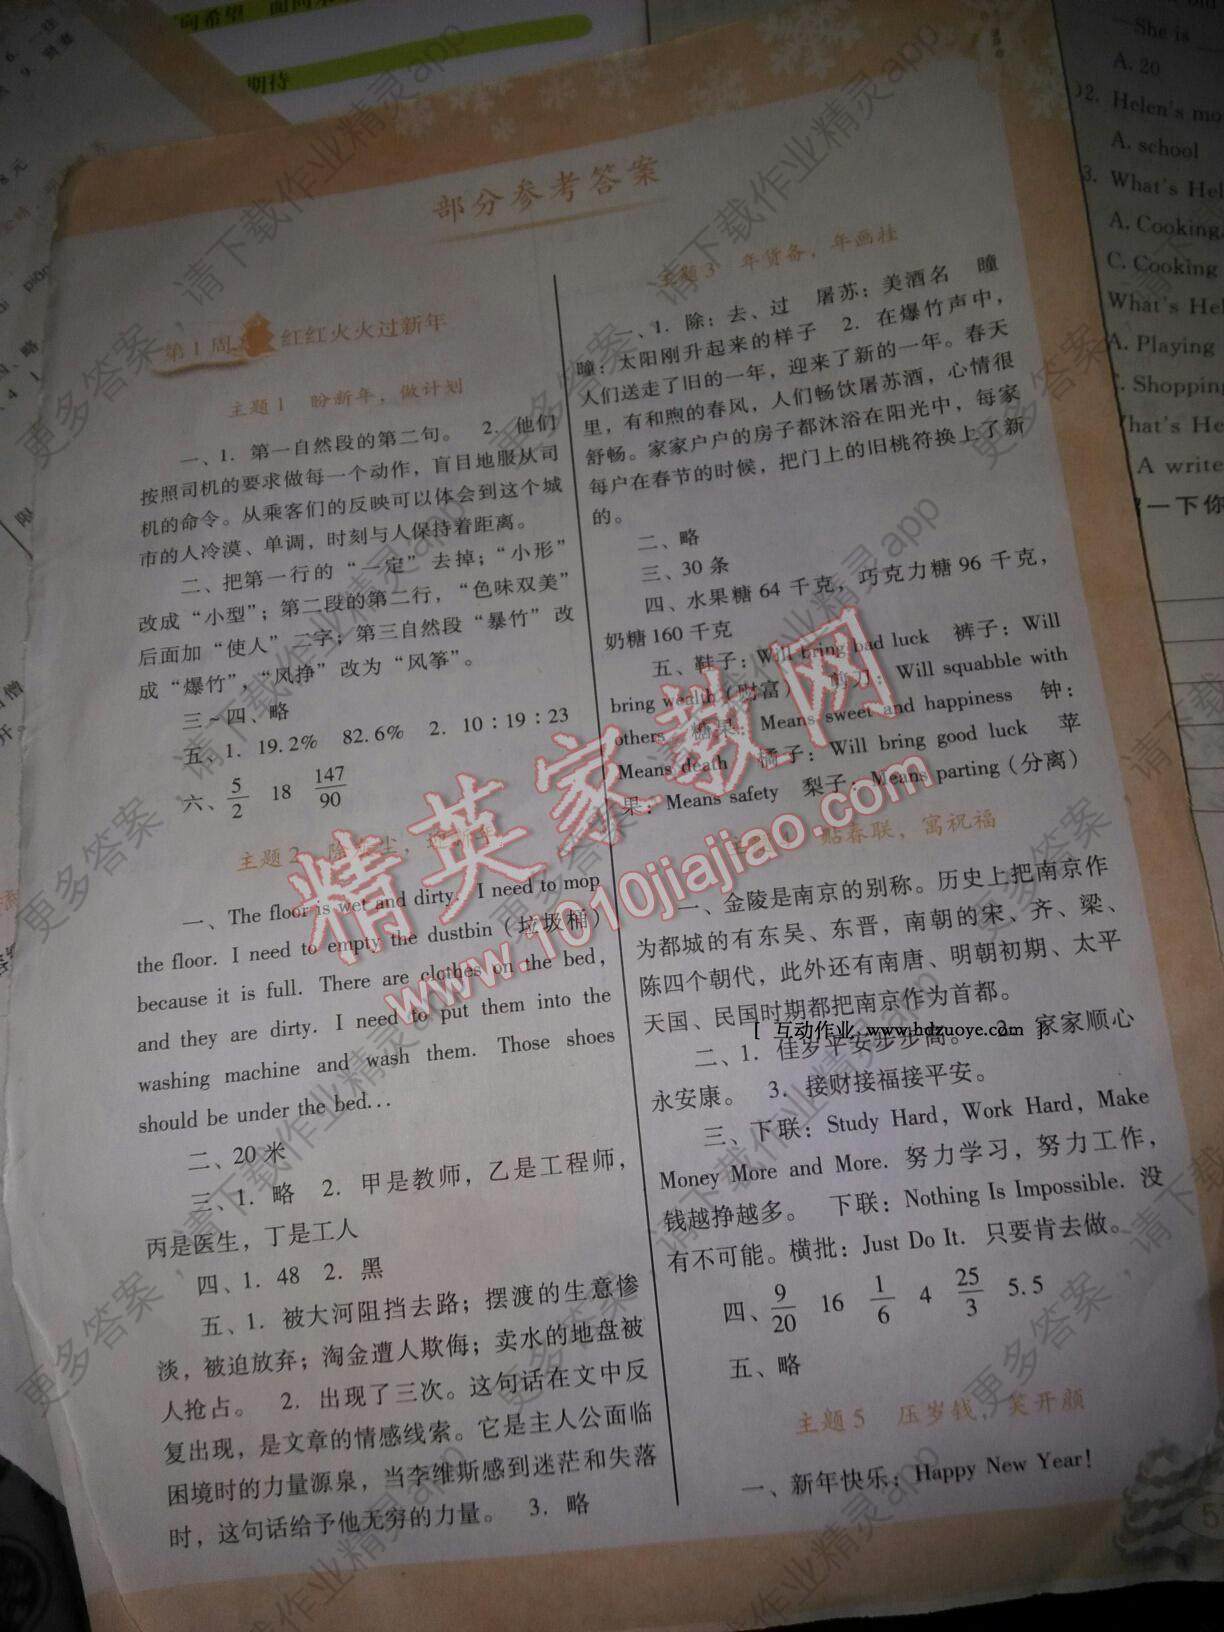 部分参考答案
第1周 红红火火过新年
主题1 盼新年，做计划
一、1. 第一自然段的第二句。 2. 他们
按照司机的要求做每一个动作，盲目地服从司
机的命令。从乘客们的反映可以体会到这个城
市的人冷漠、单调，时刻与人保持着距离。
二、把第一行的“一定”去掉；“小形”
改成“小型”；第二段的第二行，“色味双美”
后面加“使人”二字；第三自然段“暴竹”改
成“爆竹”，“风挣”改为“风筝”。
三～四、略
五、1. 19.2% 82.6% 2. 10∶19∶23
六、5/2 18 147/90
主题2 除 尘，迎新年
一、The floor is wet and dirty. I need to mop
the floor. I need to empty the dustbin (垃圾桶)
because it is full. There are clothes on the bed,
and they are dirty. I need to put them into the
washing machine and wash them. Those shoes
should be under the bed...
二、20 米
三、1. 略 2. 甲是教师，乙是工程师，
丙是医生，丁是工人
四、1. 48 2. 黑
五、1. 被大河阻挡去路；摆渡的生意惨
淡，被迫放弃；淘金遭人欺侮；卖水的地盘被
人抢占。 2. 出现了三次。这句话在文中反
复出现，是文章的情感线索。它是主人公面临
困境时的力量源泉，当李维斯感到迷茫和失落
时，这句话给予他无穷的力量。 3. 略
主题3 年货备，年画挂
一、1. 除：去、过 屠苏：美酒名 曈
曈：太阳刚升起来的样子 2. 在爆竹声中，
人们送走了旧的一年，迎来了新的一年。春天
里，有和煦的春风，人们畅饮屠苏酒，心情很
舒畅。家家户户的房子都沐浴在阳光中，每家
每户在春节的时候，把门上的旧桃符换上了新
的。
二、略
三、30 条
四、水果糖 64 千克，巧克力糖 96 千克，
奶糖 160 千克
五、鞋子：Will bring bad luck 裤子：Will
bring wealth (财富) 剪刀：Will squabble with
others 糖果：Means sweet and happiness 钟：
Means death 橘子：Will bring good luck 苹
果：Means safety 梨子：Means parting (分离)
主 贴春联，寓祝福
一、金陵是南京的别称。历史上把南京作
为都城的有东吴、东晋，南朝的宋、齐、梁、
陈四个朝代，此外还有南唐、明朝初期、太平
天国、民国时期都把南京作为首都。
[ 互动作业 www.hdzuoye.com ]
二、1. 佳岁平安步步高。 2. 家家顺心
永安康。 3. 接财接福接平安。
三、下联：Study Hard, Work Hard, Make
Money More and More. 努力学习，努力工作，
钱越挣越多。 下联：Nothing Is Impossible. 没
有不可能。横批：Just Do It. 只要肯去做。
四、9/20 16 1/6 4 25/3 5.5
五、略
主题5 压岁钱，笑开颜
一、新年快乐：Happy New Year!
精英家教网
www.1010jiajiao.com
更多答案，请下载作业精灵app
期待
—She is
A. 20
Helen's mo
A. school
What's Hel
A. Cooking
C. Cooking
What's He
A. Playing
C. Shopping
What's He
A write
一下你